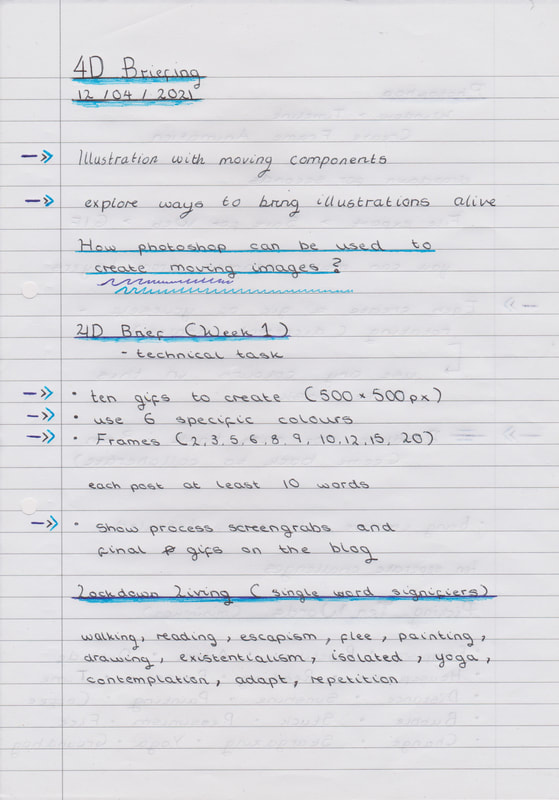 4D Briefing
12/04/2021
Illustration with moving components
explore ways to bring illustrations alive
How photoshop can be used to
create moving images?
4D Brief (Week 1)
- technical task
• ten gifs to create (500 x 500px)
• use 6 specific colours
• Frames (2, 3, 5, 6, 8, 9, 10, 12, 15, 20)
each post at least 10 words
• Show process screengrabs and
final gifs on the blog
Lockdown Living (single word signifiers)
walking, reading, escapism, flee, painting,
drawing, existentialism, isolated, yoga,
contemplation, adapt, repetition